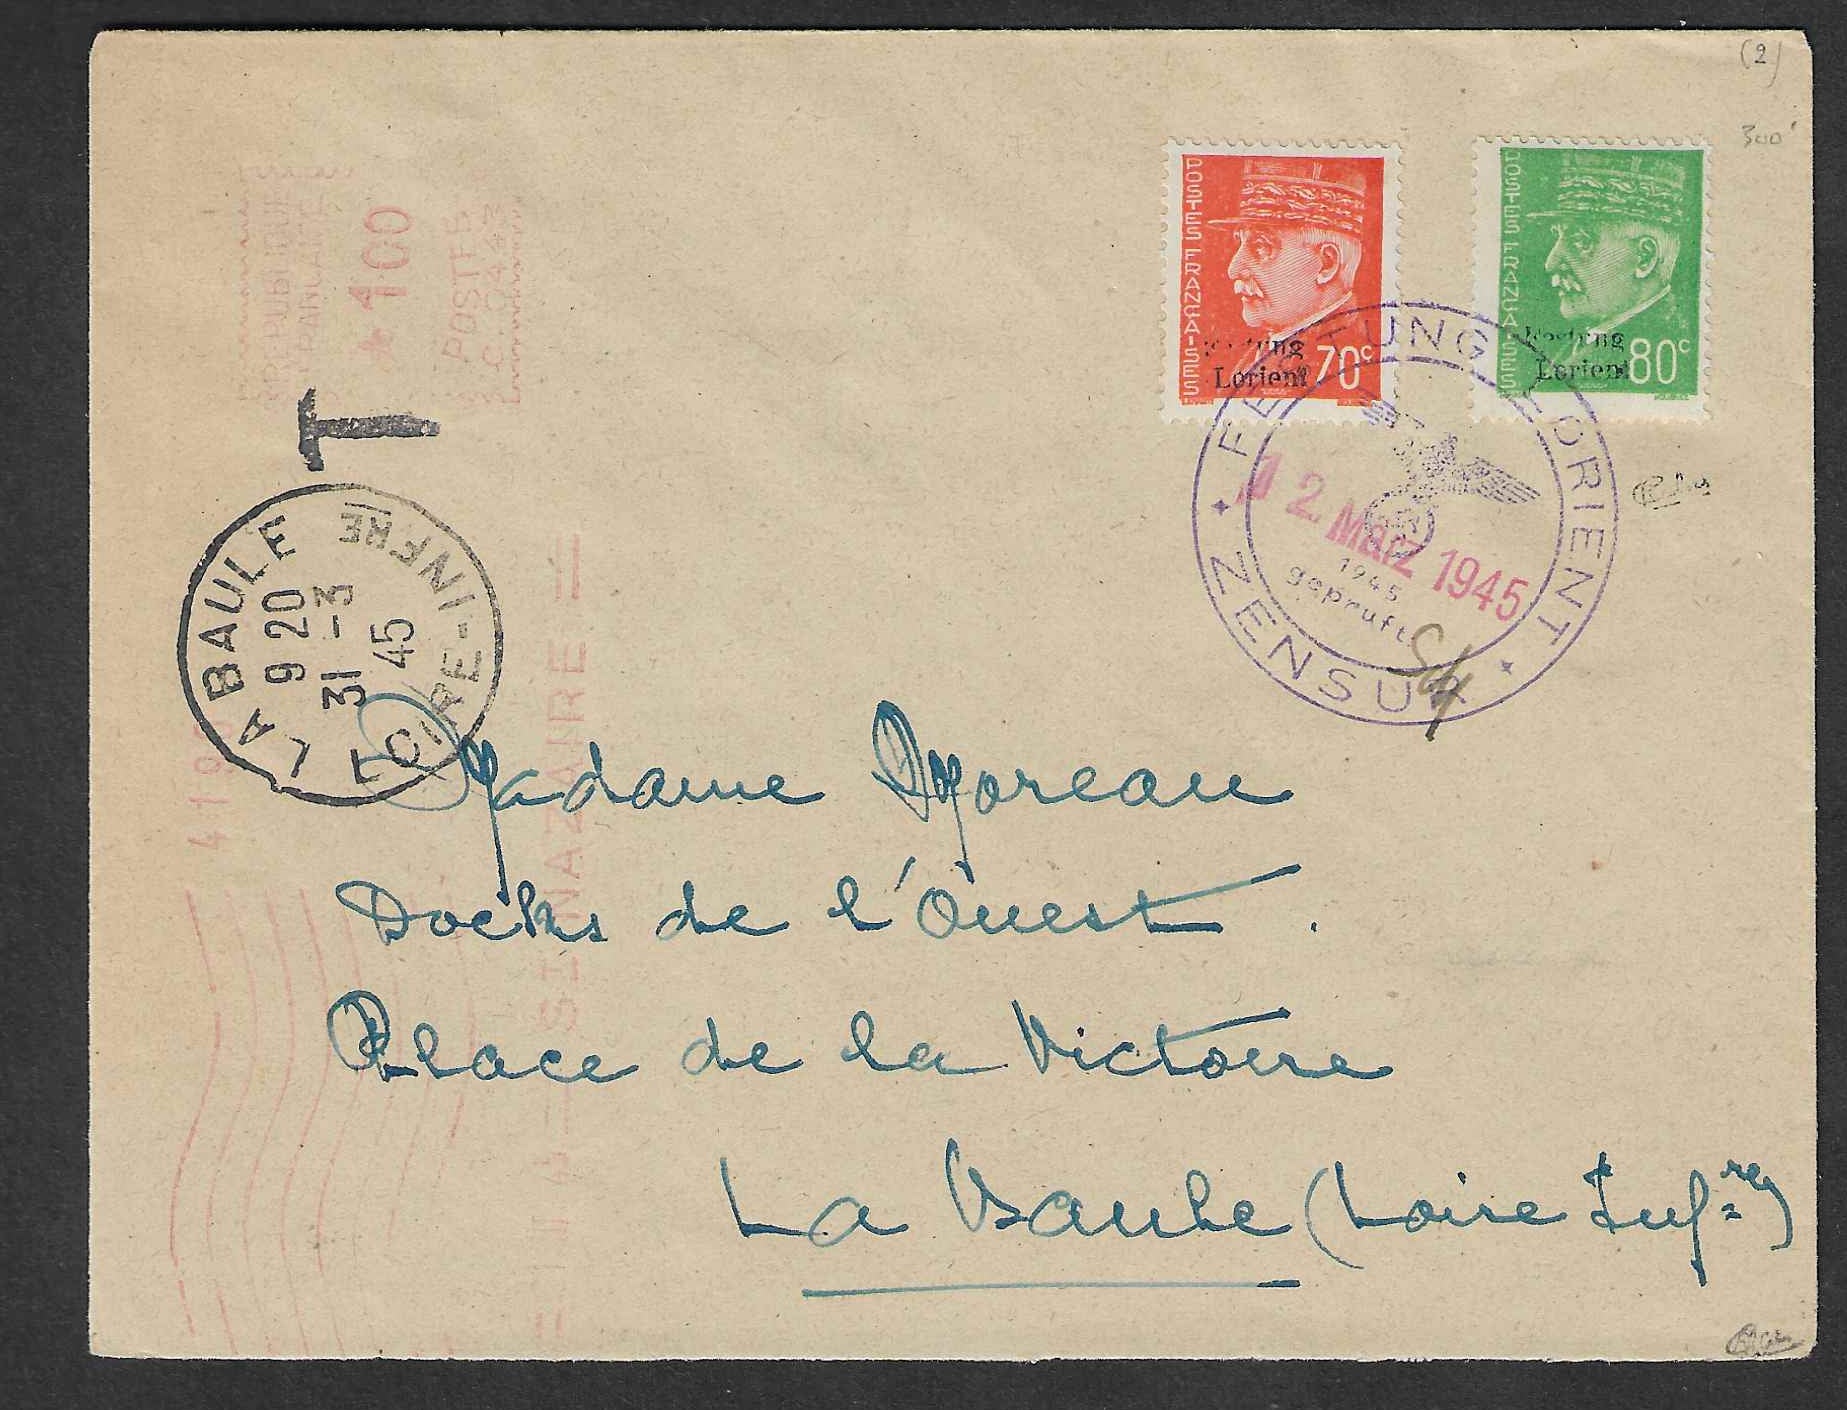 (2)
300
POSTES FRANÇAISES
70c
Festung
Lorient
POSTES FRANÇAISES
80c
Festung
Lorient
FESTUNG LORIENT
ZENSUR
12. März 1945
1945
geprüft
REPUBLIQUE
FRANCAISE
100
POSTES
C.0443
T
LA BAULE
LOIRE-INFRE
9 20
31 -3
45
ST NAZAIRE
Madame Moreau
Docks de l'Ouest.
Place de la Victoire
La Baule (Loire Infre)